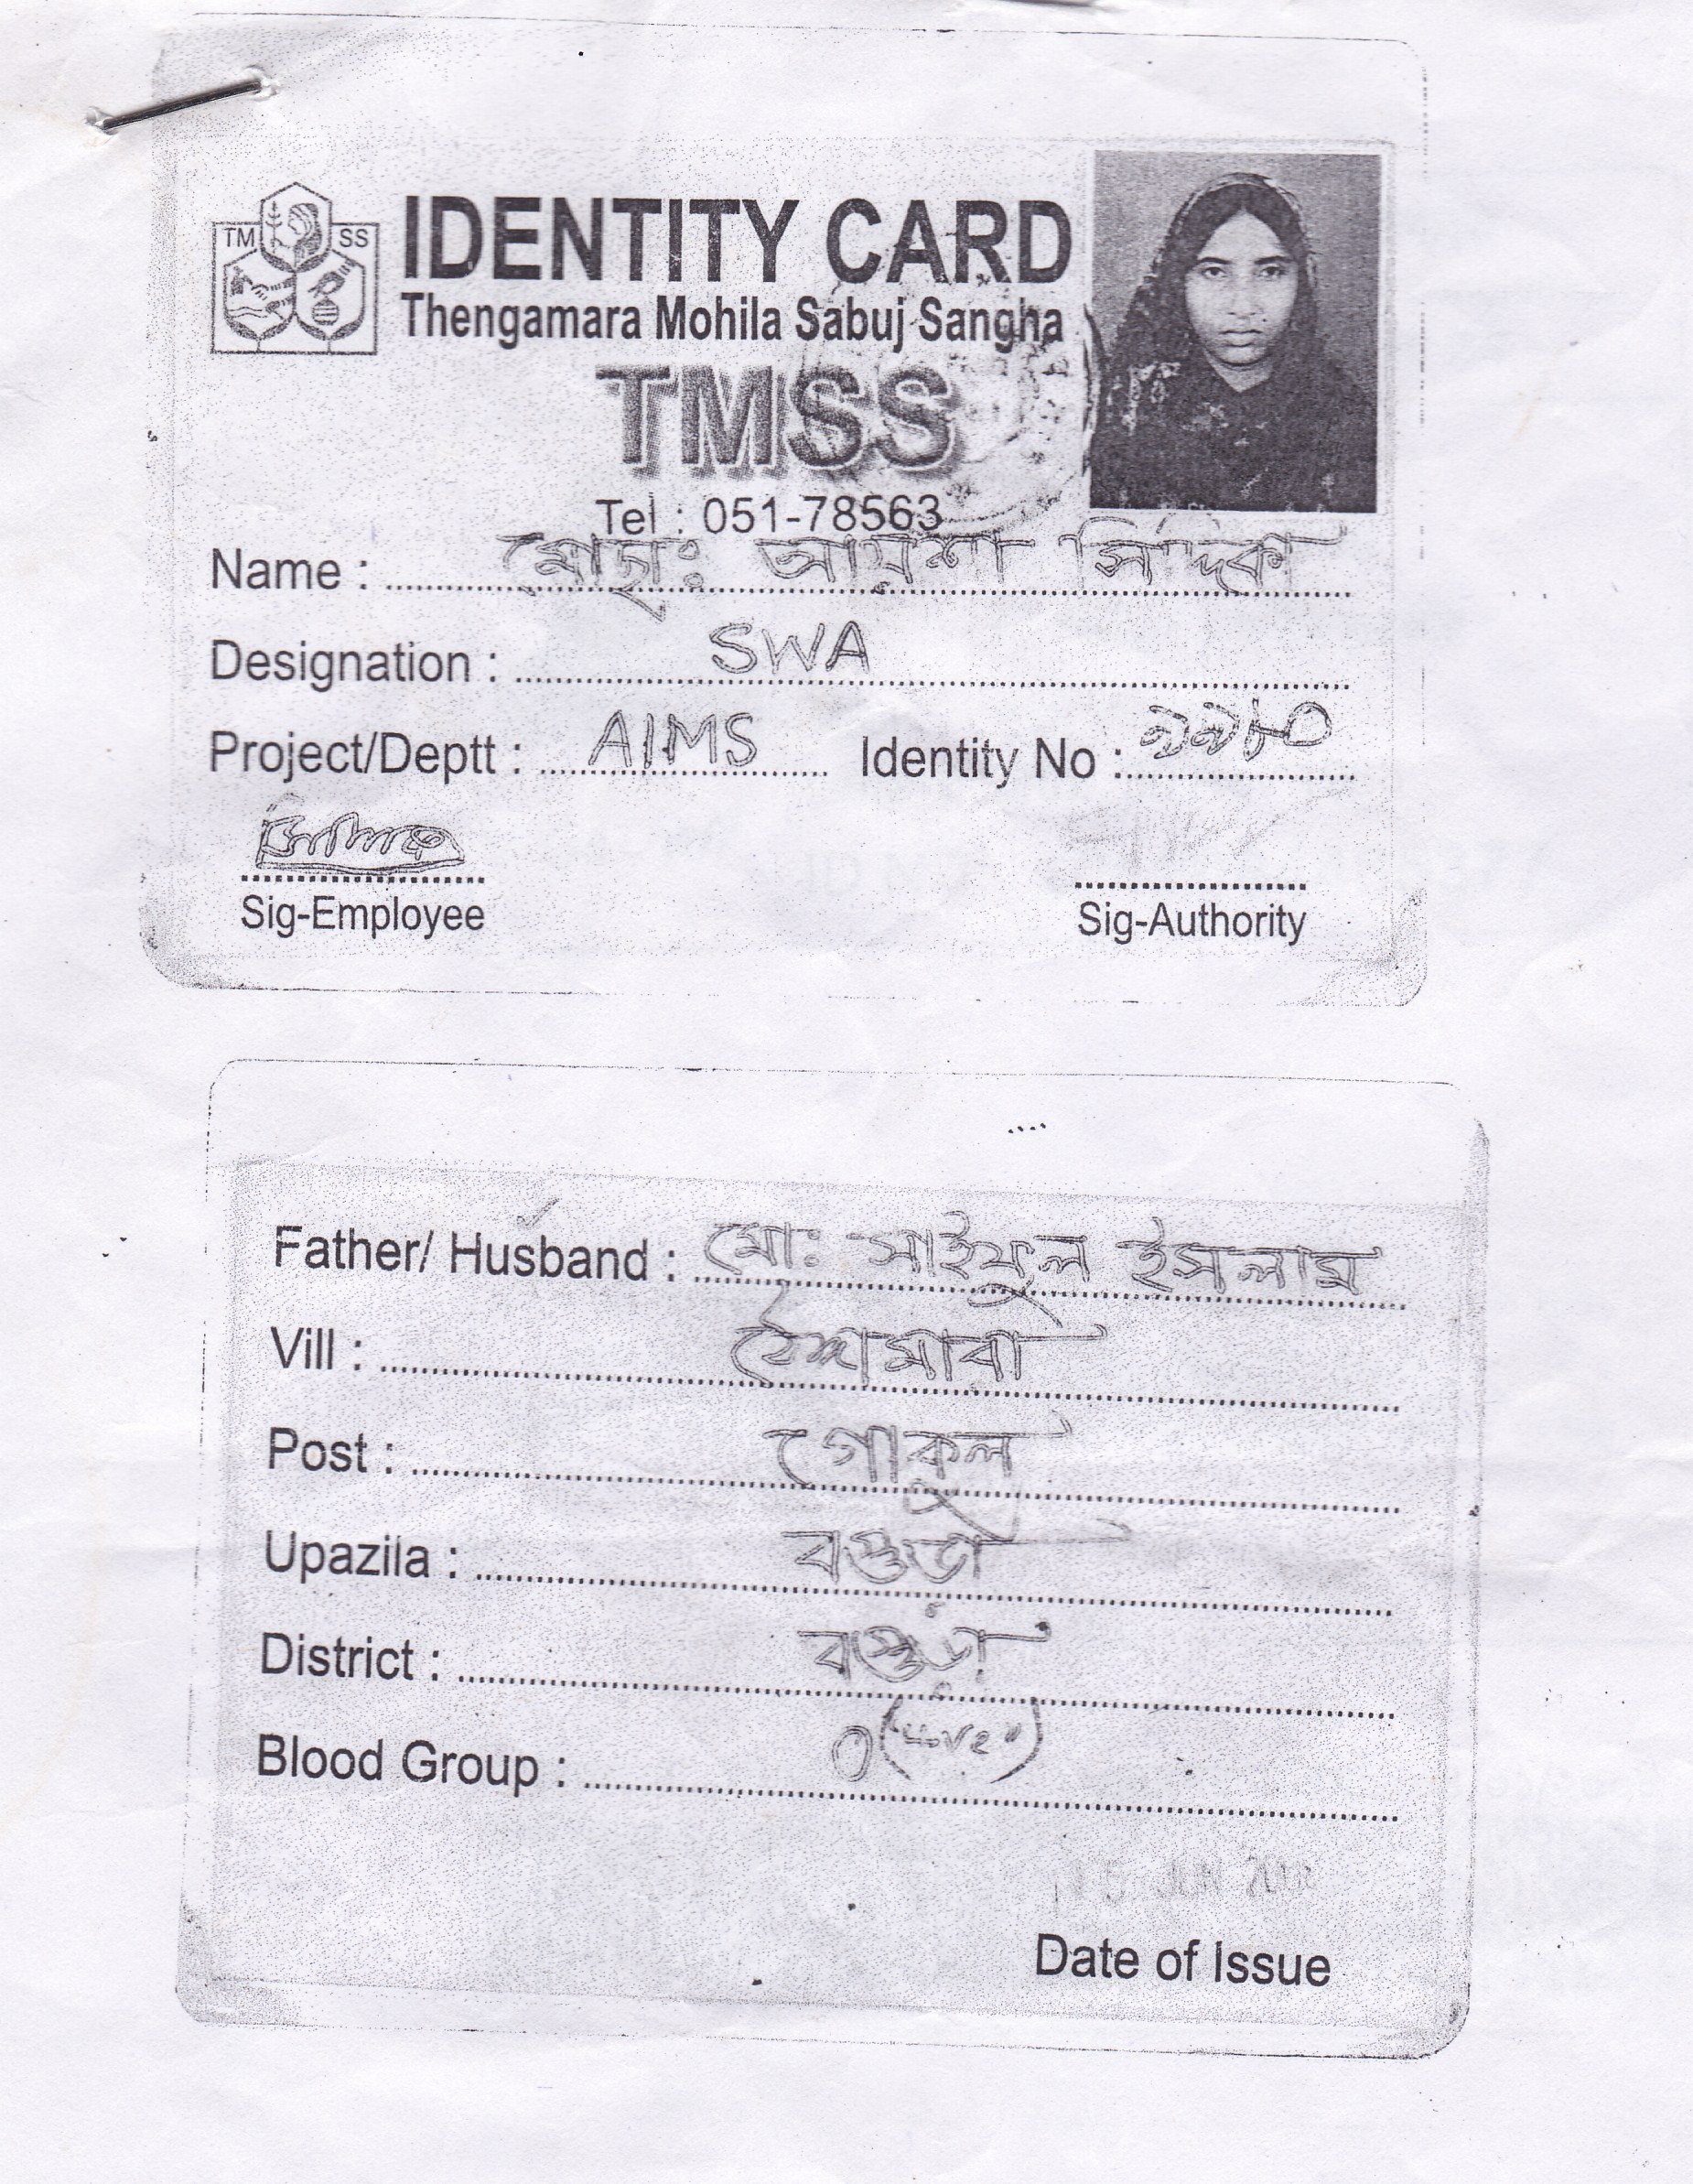 TM SS
IDENTITY CARD
Thengamara Mohila Sabuj Sangha
TMSS
Tel : 051-78563
Name : মোছাঃ আয়শা সিদ্দিকা
Designation : SWA
Project/Deptt : AIMS Identity No :
Sig-Employee Sig-Authority
Father/ Husband : মোঃ সাইফুল ইসলাম
Vill : ঠেঙ্গামারা
Post : গোকুল
Upazila : বগুড়া
District : বগুড়া
Blood Group : O
JUN
Date of Issue